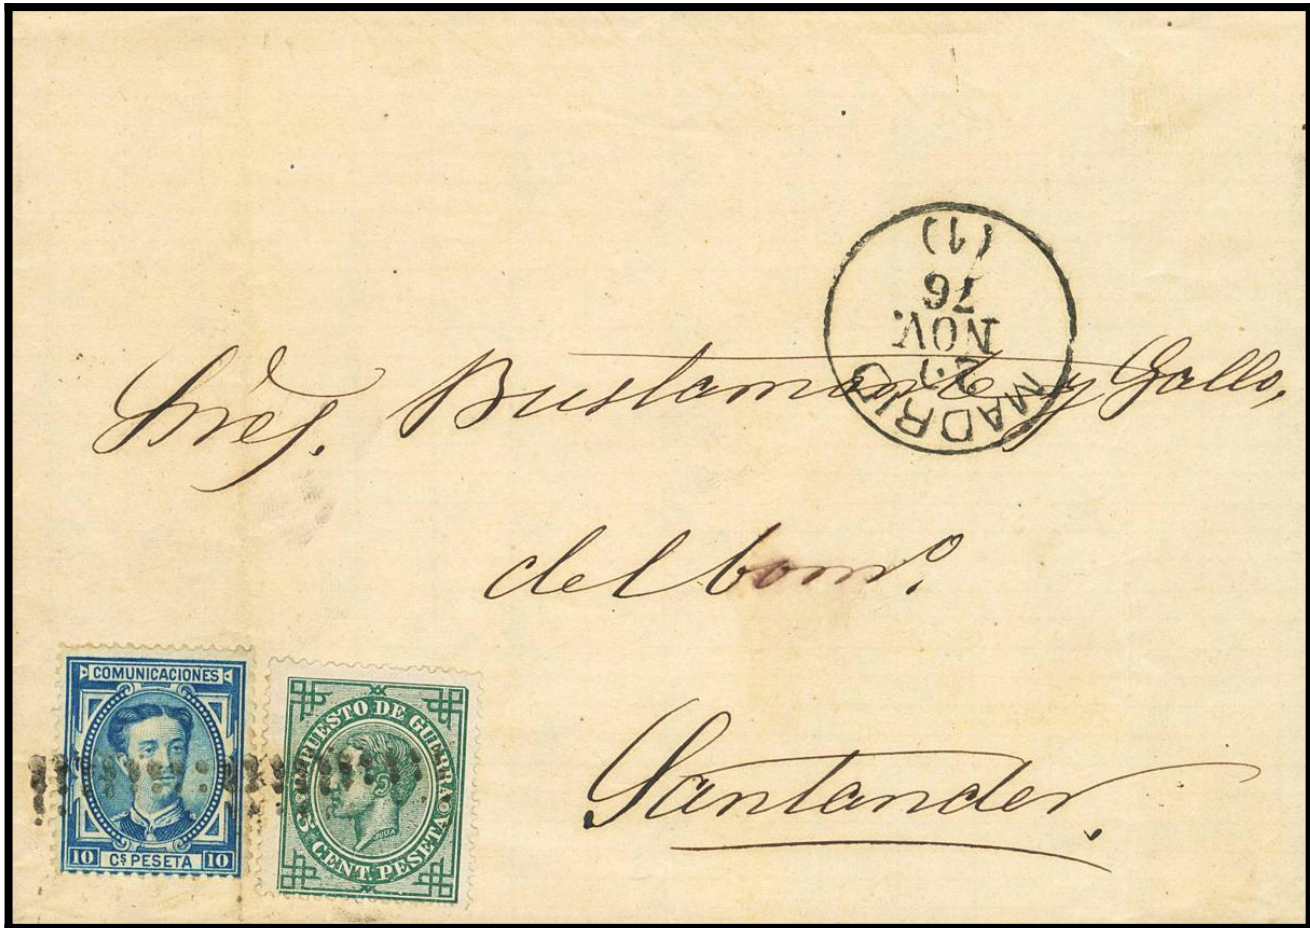 (1)
76
NOV.
MADRID
Sres. Bustamante y Gallo,
del Comº.
Santander.
COMUNICACIONES
10 Cs PESETA 10
IMPUESTO DE GUERRA
5 CENT. PESETA
JULIA